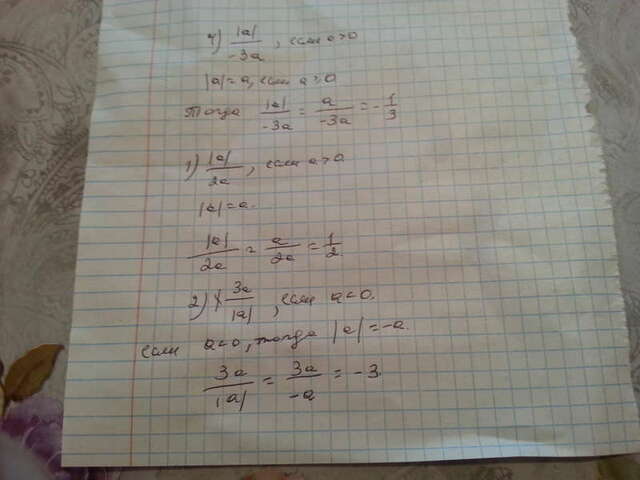 4) |a|/-3a, если a>0
|a|=a, если a>0
Тогда |a|/-3a = a/-3a = -1/3
1) |a|/2a, если a>0
|a|=a.
|a|/2a = a/2a = 1/2
2) 3a/|a|, если a<0.
если a<0, тогда |a|=-a.
3a/|a| = 3a/-a = -3.